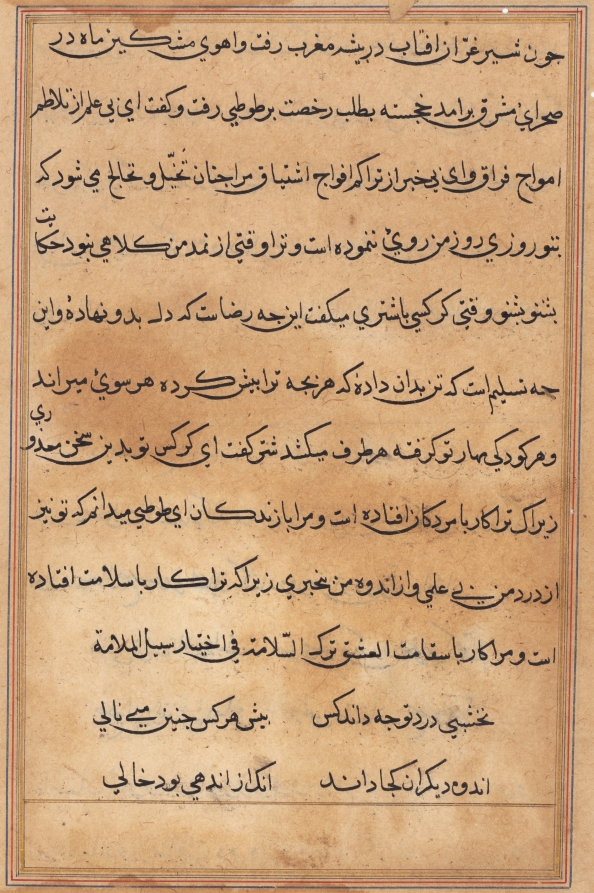 جون شیر غرّان افتاب در بیشه مغرب رفت و اهوي مشکین ماه در
صحراي مشرق برامد خجسته بطلب رخصت بر طوطي رفت و کفت اي بي علم از تلاطم
امواج فراق واي بي خبر از تراکم افواج اشتیاق مرا جنان تخیّل و تخالج مي شود که
بتو روزي روز من روئ ننموده است و ترا وقتي از نمد من کلاهي نبود حکایت
بشنو بشنو وقتي کرکسي با شتري میکفت این جه رضاست که دل بدو نهادۀ واین
جه تسلیم است که تن بدان دادۀ که هر بجه ترا پیش کرده هر سوئ میراند
و هر کودکي مهار تو کرفته هر طرف میکشد شتر کفت اي کرکس تو بدین سخن معذوري
زیراک ترا کار با مردکان افتاده است و مرا با زندکان اي طوطي میدانم که تو نیز
از درد من بے علمي و از اندوه من بیخبري زیرا که ترا کار با سلامت افتاده
است و مرا کار با سقامت العشق ترک السّلامة في اختیار سبیل الملامة
نخشبي درد تو جه داند کس بیش هر کس جنین میے نالي
اندوه دیکران کجا داند انک از اندهي بود خالي